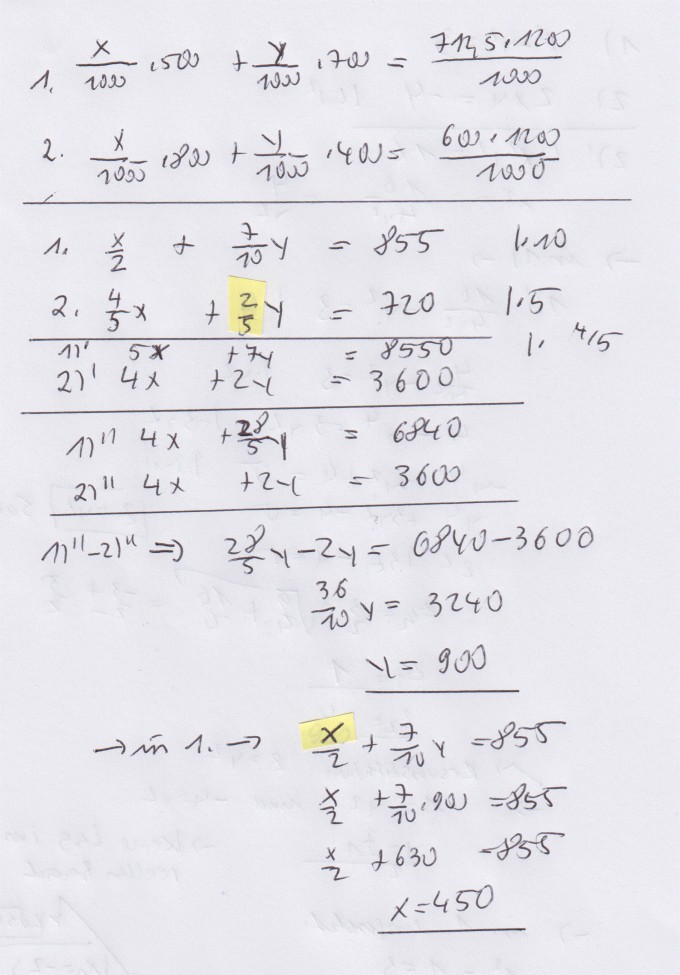 1. x/1000 · 500 + y/1000 · 700 = 712,5 · 1200/1000
2. x/1000 · 800 + y/1000 · 400 = 600 · 1200/1000
1. x/2 + 7/10 y = 855 |·10
2. 4/5 x + 2/5 y = 720 |·5
1)' 5x + 7y = 8550 |· 4/5
2)' 4x + 2y = 3600
1)'' 4x + 28/5 y = 6840
2)'' 4x + 2y = 3600
1)''-2)'' => 28/5 y - 2y = 6840 - 3600
36/10 y = 3240
y = 900
→ in 1. → x/2 + 7/10 y = 855
x/2 + 7/10 · 900 = 855
x/2 + 630 = 855
x = 450